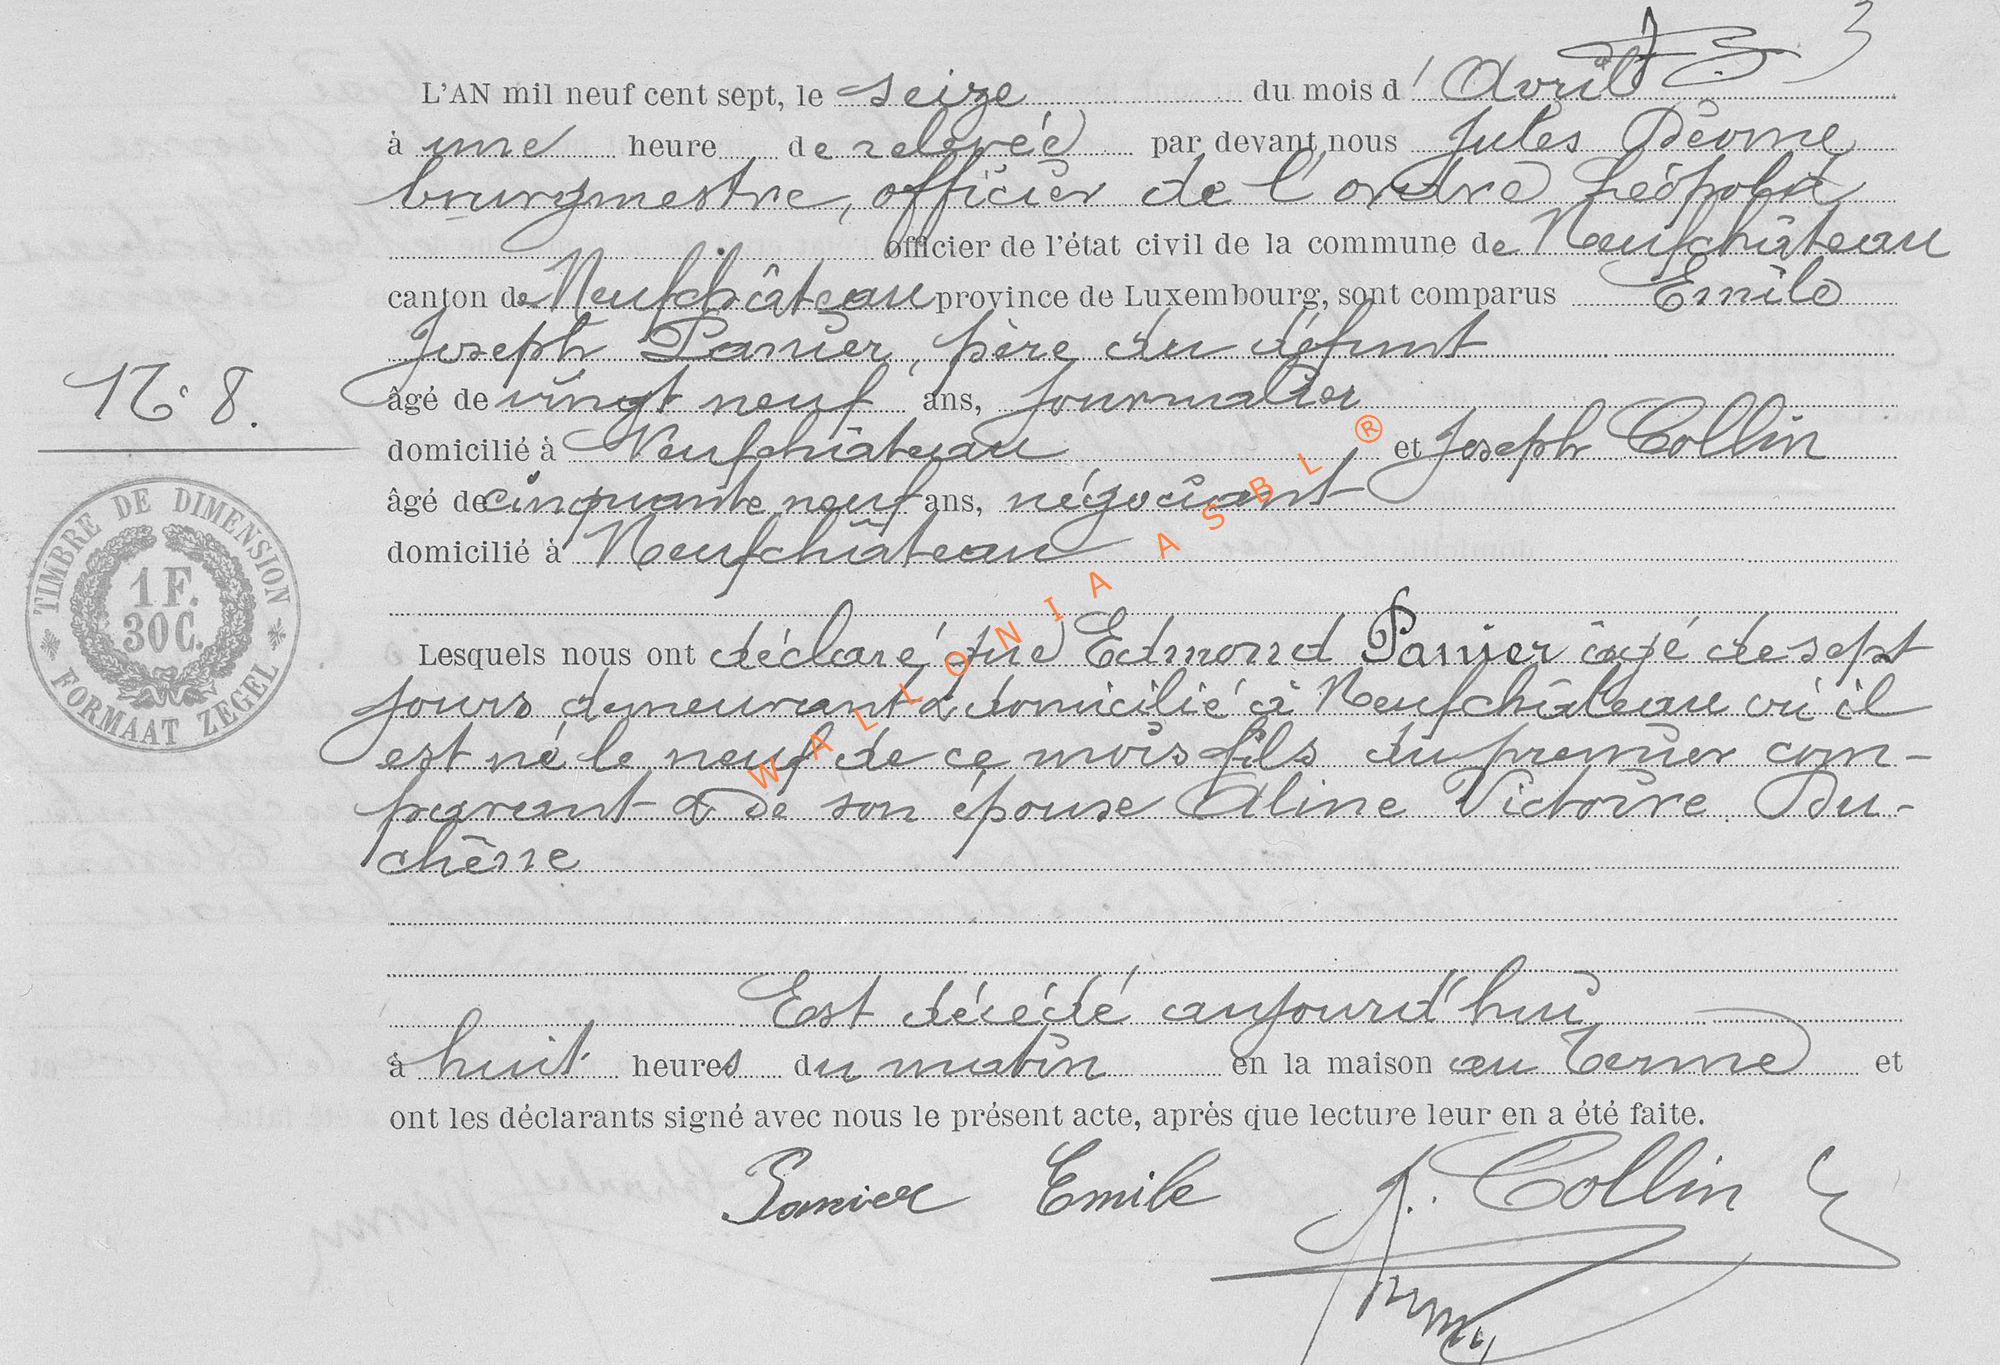 3
L'AN mil neuf cent sept, le seize du mois d'Avril
à une heure de relevée par devant nous Jules Déome
bourgmestre, officier de l'ordre Léopold
officier de l'état civil de la commune de Neufchâteau
canton de Neufchâteau province de Luxembourg, sont comparus Emile
Joseph Panier, père du défunt
N° 8.
âgé de vingt neuf ans, journalier
domicilié à Neufchâteau et Joseph Collin
âgé de cinquante neuf ans, négociant
domicilié à Neufchâteau
TIMBRE DE DIMENSION
1 F.
30 C.
FORMAAT ZEGEL
Lesquels nous ont déclaré que Edmond Panier âgé de sept
jours demeurant & domicilié à Neufchâteau où il
est né le neuf de ce mois fils du premier com-
parant & de son épouse Aline Victoire Du-
chêne
Est décédé aujourd'hui
à huit heures du matin en la maison au Terme et
ont les déclarants signé avec nous le présent acte, après que lecture leur en a été faite.
Panier Emile J. Collin
WALLONIA ASBL ®